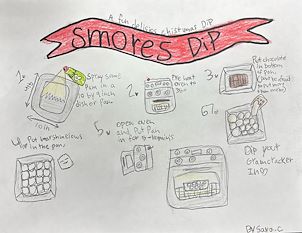 A fun delicies christmas DIP
SMORES DIP
1.
Spray some
Pam in a
10 by 9 inch
disher Pan
10in
2.
Pre heat
oven to
3.
Put chocolate
by bottom
of pan.
4. Put marshmellows
in the pan.
5.
open oven
and Put Pan
in for
6.
DIP your
Gramcracker
IN
By Sara.C